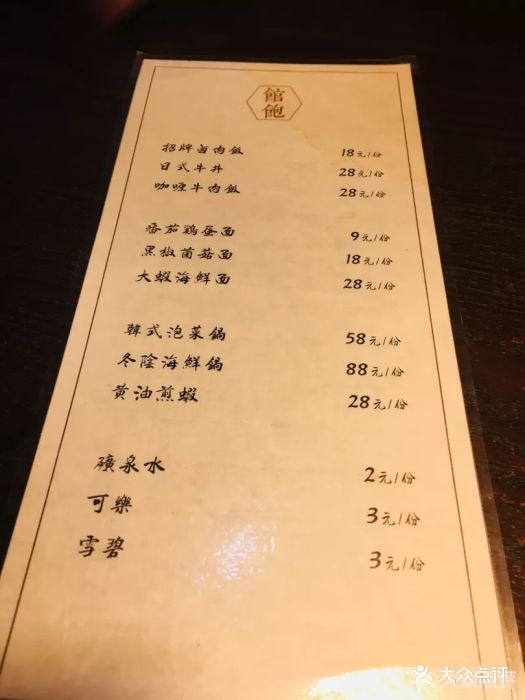 館
飽
招牌卤肉飯 18元/份
日式牛丼 28元/份
咖喱牛肉飯 28元/份
番茄鶏蛋面 9元/份
黑椒菌菇面 18元/份
大蝦海鮮面 28元/份
韓式泡菜鍋 58元/份
冬陰海鮮鍋 88元/份
黄油煎蝦 28元/份
礦泉水 2元/份
可樂 3元/份
雪碧 3元/份
大众点评